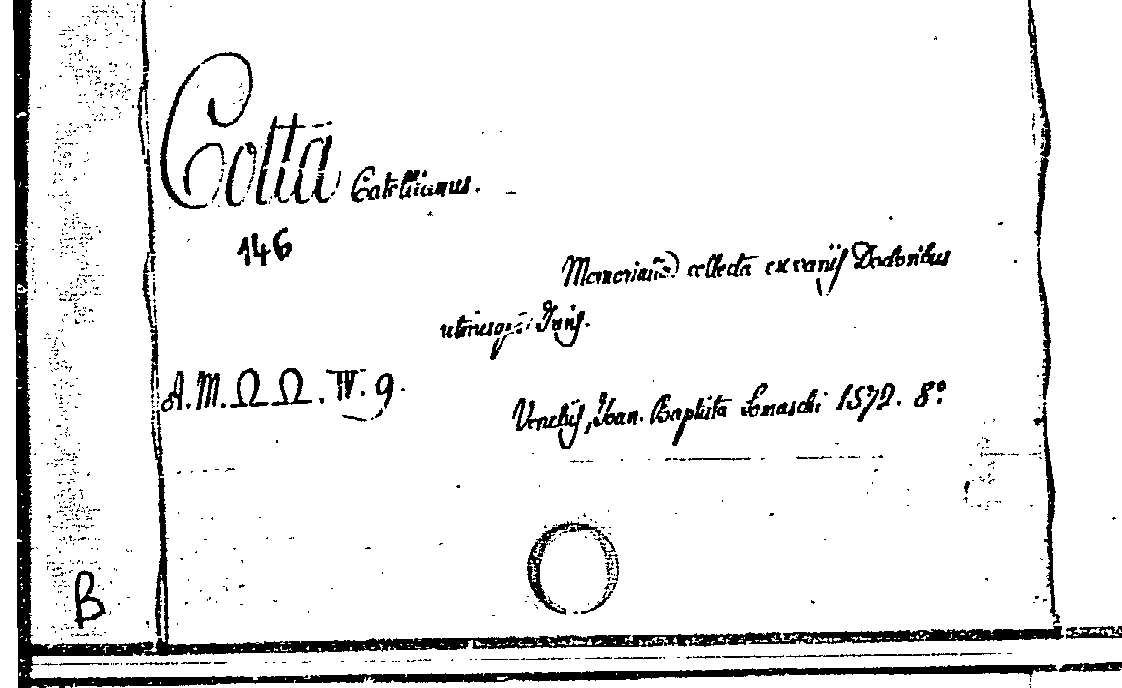 Cotta Catellianus.
146
Memorialia collecta ex varijs Doctoribus
utriusque Juris.
A.M. Ω Ω. IV. 9.
Venetijs, Joan. Baptista Somaschi 1572. 8°
B